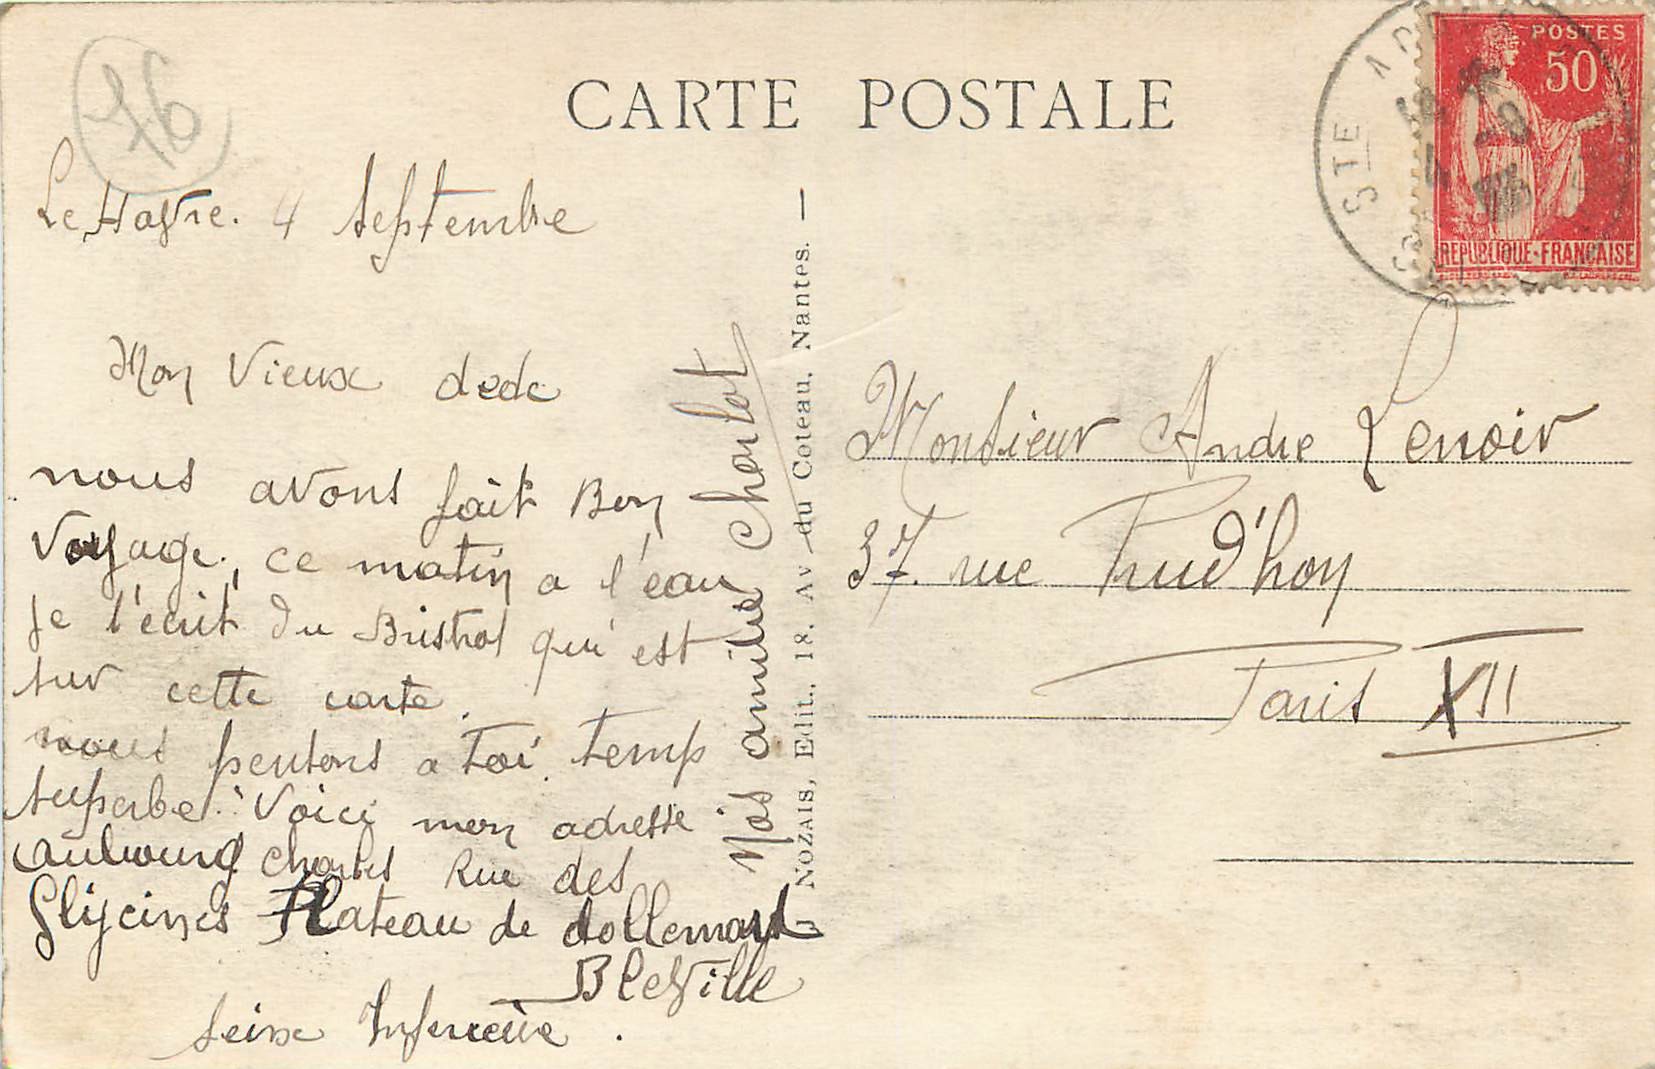 76
CARTE POSTALE
POSTES
50
REPUBLIQUE-FRANÇAISE
STE
Le Havre. 4 Septembre
Mon Vieux dede
nous avons fait Bon
Voyage, ce matin a l'eau
Je t'écrit du Bristol qui est
sur cette carte.
nous pensons a Toi. Temp
superbe. Voici mon adresse
Charles Rue des
Glycines Plateau de dollemard
Bleville
Seine Inferieure.
Nos amitié Charlot
NOZAIS, Edit., 18, Av du Coteau, Nantes. —
Monsieur Andre Lenoir
37. rue Prud'hon
Paris XII